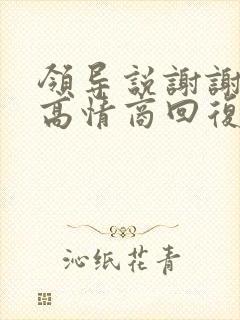 領导説謝謝
高情商回復
沁纸花青